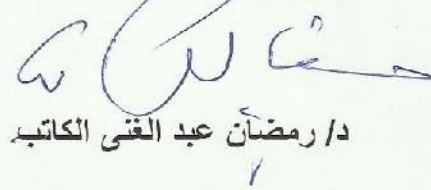 د/ رمضان عبد الغنى الكاتب